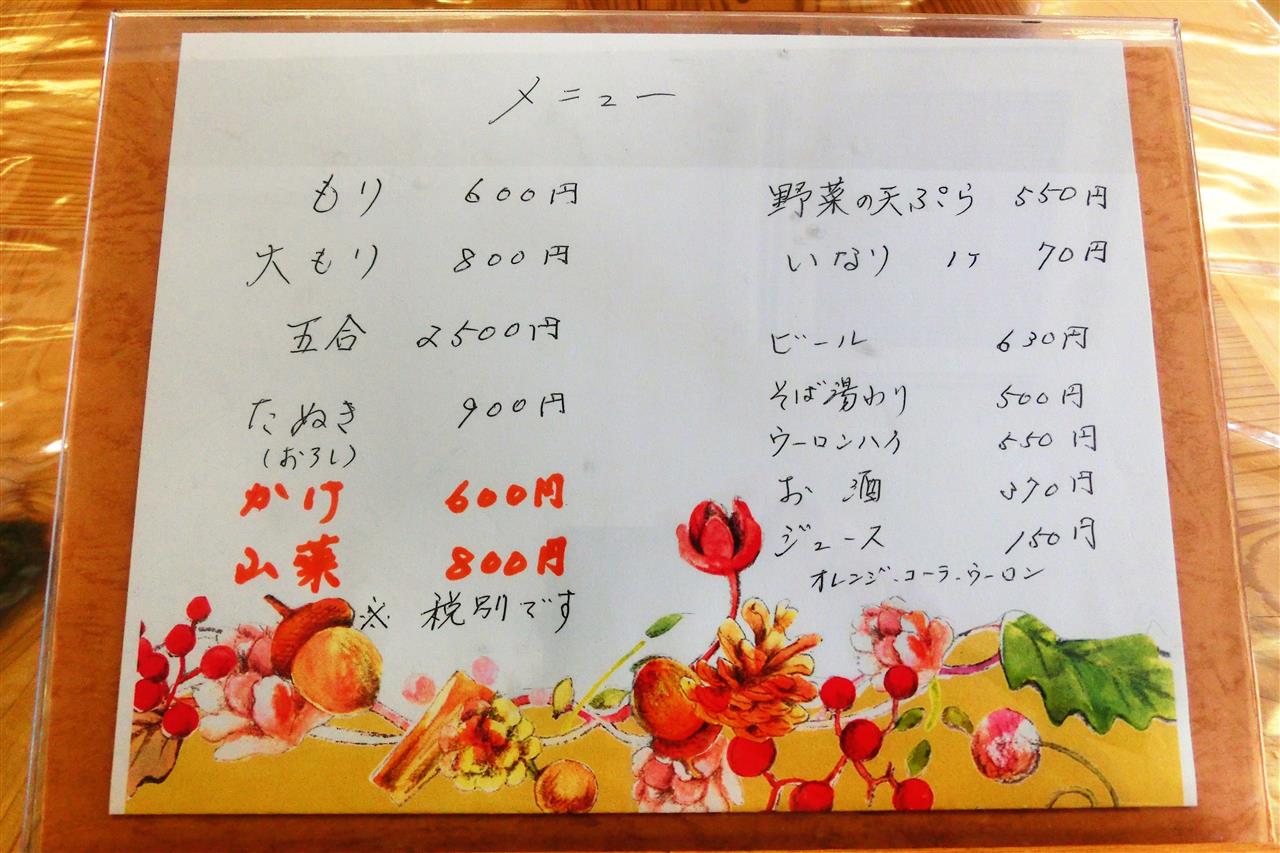 メニュー
もり 600円
大もり 800円
五合 2500円
たぬき 900円
(おろし)
かけ 600円
山菜 800円
※ 税別です
野菜の天ぷら 550円
いなり 1ケ 70円
ビール 630円
そば湯わり 500円
ウーロンハイ 550円
お酒 370円
ジュース 150円
オレンジ・コーラ・ウーロン